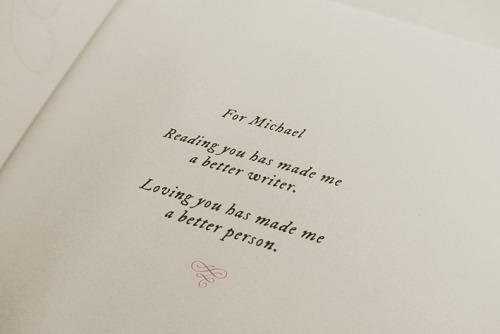 For Michael
Reading you has made me
a better writer.
Loving you has made me
a better person.